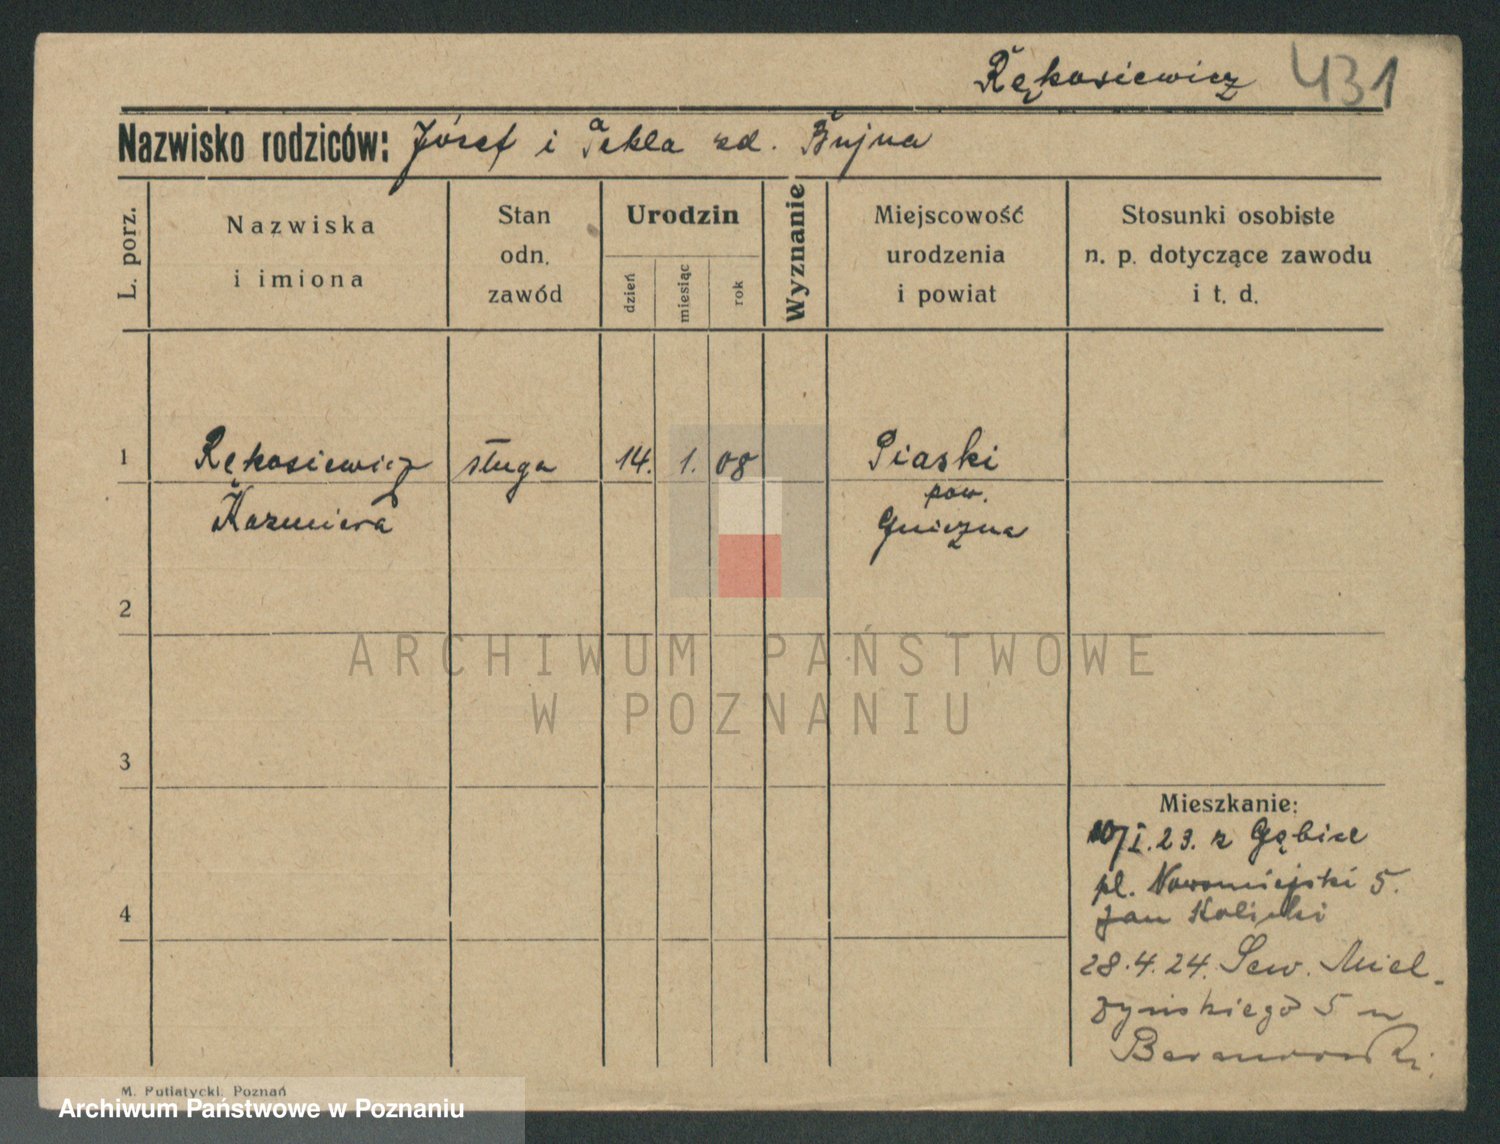 Rękosiewicz 431
Nazwisko rodziców: Józef i Tekla zd. Bujna
L. porz.
Nazwiska
i imiona
Stan
odn.
zawód
Urodzin
dzień
miesiąc
rok
Wyznanie
Miejscowość
urodzenia
i powiat
Stosunki osobiste
n. p. dotyczące zawodu
i t. d.
1 Rękosiewicz sługa 14. 1. 08 Piaski
Kazmiera pow.
Gniezna
2
ARCHIWUM PAŃSTWOWE
W POZNANIU
3
Mieszkanie:
20/I.23. z Gębice
pl. Nowomiejski 5.
4
Jan Kolicki
28.4.24. Sew. Miel-
żyńskiego 5 u
Baranowski.
M. Putiatycki, Poznań
Archiwum Państwowe w Poznaniu